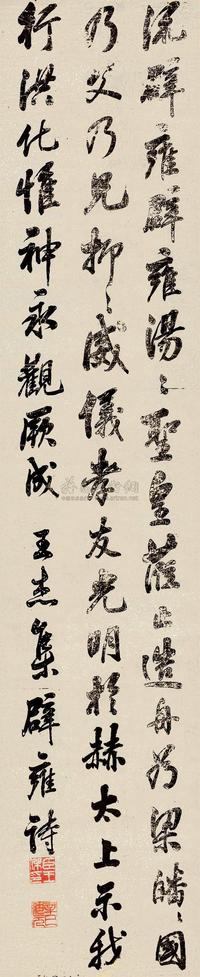 流辟雍辟雍湯〻聖皇蒞止造舟為梁皤〻國
乃父乃兄抑〻威儀孝友光明於赫太上示我
行洪化惟神永觀厥成 王杰集辟雍詩